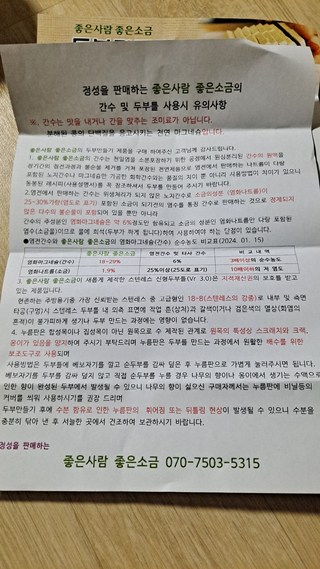 좋은사람 좋은소금
정성을 판매하는 좋은사람 좋은소금의
간수 및 두부틀 사용시 유의사항
※. 간수는 맛을 내거나 간을 맞추는 조미료가 아닙니다.
분해된 콩의 단백질을 응고시키는 천연 마그네슘입니다.
좋은사람 좋은소금의 두부만들기 제품을 구매 하여주신 고객님께 감사드립니다.
1. 좋은사람 좋은소금의 간수는 천일염을 소분포장하기 위한 공정에서 원심분리된 간수의 원액을
동봉된 레시피(사용설명서)를 꼭 참조하셔서 두부를 만들어 주시기 바랍니다.
2.염전에서 판매하는 간수는 위생처리가 되지 않은 노지간수로 소금의성분 (염화나트륨)이
25~30%가량(염도로 표기) 포함된 소금이 되기전의 염수를 통칭 간수로 판매하는 것으로 정제되지
않은 다수의 불순물이 포함되어 있을 뿐만 아니라
간수의 주성분인 염화마그네슘은 약 6%정도만 함유되고 소금의 성분인 염화나트륨만 다량 포함된
염수(소금물)이므로 물에 희석(두부가 하게 됩니다)하여 사용하여야 하는 단점이 있습니다.
●염전간수와 좋은사람 좋은소금의 염화마그네슘(간수) 순수농도 비교표(2024. 01. 15)
좋은사람좋은소금 염전간수 및 타사 간수 비 교 내 역
염화마그네슘(간수) 18~29% 6% 3배이상의 순수농도
염화나트륨(소금) 1.9% 25%이상(25도로 표기) 10배이하의 저 염도
3. 좋은사람 좋은소금이 새롭게 제작한 스텐레스 신형두부틀(Vr 3.0)은 지적재산건의 보호를 받고
있는 제품입니다.
현존하는 주방용기중 가장 신뢰받는 스텐레스 중 고급형인 18-8(스텐레스의 강종)로 내부 및 측면
타공(구멍)시 스텐레스 두부틀 내 외측 표면에 작업 흠(상처)과 갈색이거나 검은색의 열실링(회염의
흔적)이 불가피하게 생기나 두부 만드는 과정에는 영향이 없습니다.
4. 누름판은 합성목이나 집성목이 아닌 원목으로 수 제작된 관계로 원목의 특성상 스크래치와 크랙,
옹이가 있음을 양지하여 주시기 부탁드리며 누름판은 두부를 만드는 과정에서 원활한 배수를 위한
보조도구로 사용되며
사용방법은 두부틀에 베보자기를 깔고 순두부를 감싸 덮은 후 누름판으로 가볍게 눌러주시면 됩니다.
베보자기를 두부를 감싸 덮지 않고 직접 순두부를 누를 경우 나무의 향이나 옹이에서 생기는 수액으로
인한 향이 완성된 두부에서 발생될 수 있으니 나무의 향이 싫으신 구매자께서는 누름판에 비닐등의
커버를 씌워 사용하시기를 권장 드리며
두부만들기 후에 수분 함유로 인한 누름판의 휘어짐 또는 뒤틀림 현상이 발생될 수 있으니 수분을
충분히 닦아 낸 후 서늘한 곳에서 건조하여 보관하시기 바랍니다.
정성을 판매하는
좋은사람 좋은소금 070-7503-5315